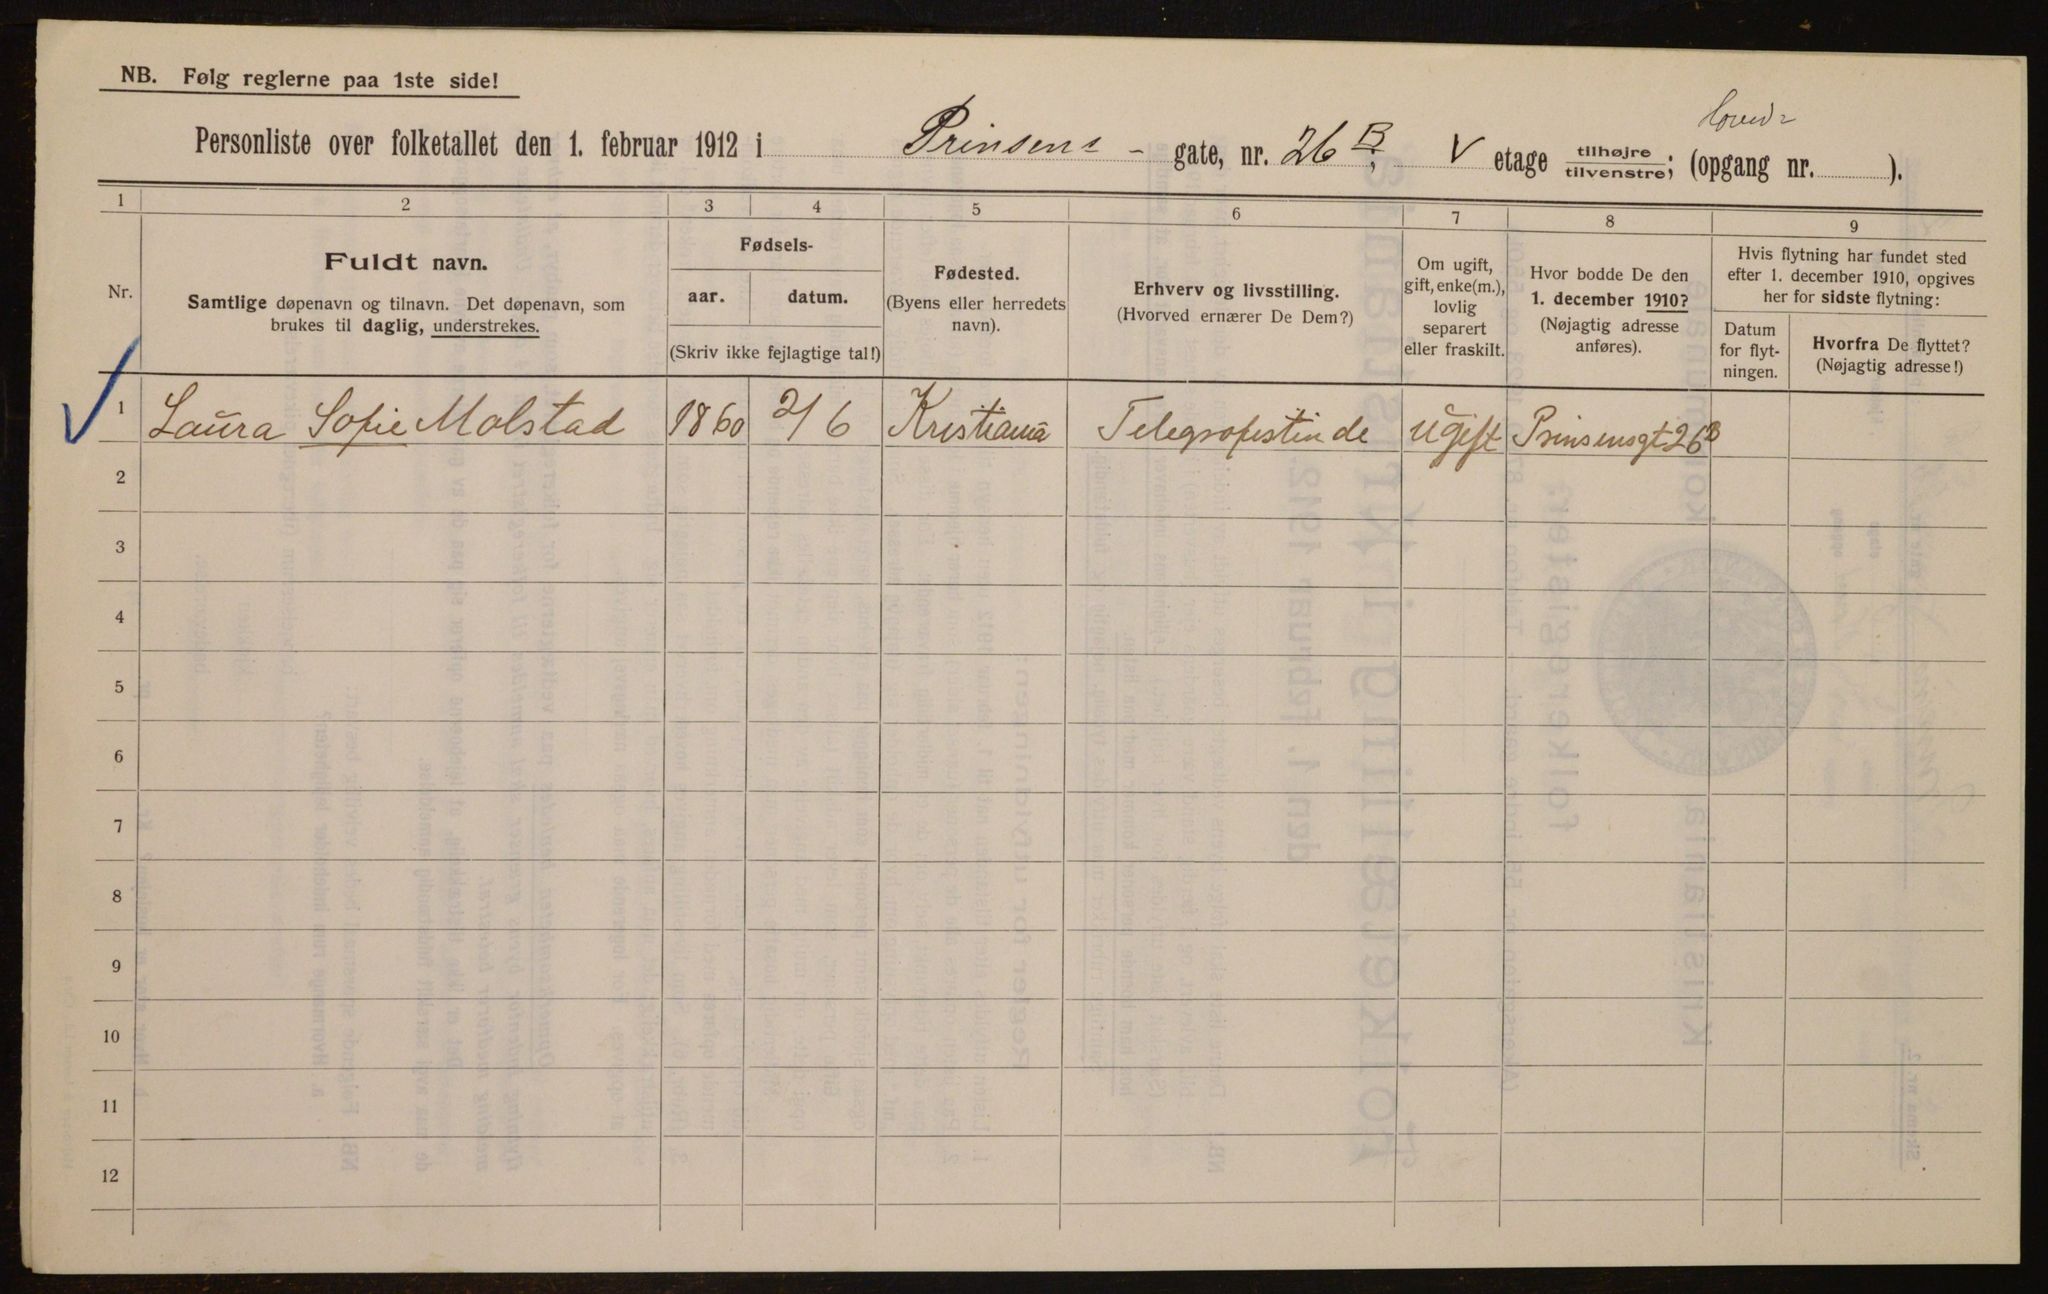 NB. Følg reglerne paa 1ste side!
Hoved-
Personliste over folketallet den 1. februar 1912 i Prinsens - gate, nr. 26 B; V etage tilhøjre/tilvenstre; (opgang nr. ).
1 2 3 4 5 6 7 8 9
Nr.
Fuldt navn.
Samtlige døpenavn og tilnavn. Det døpenavn, som
brukes til daglig, understrekes.
Fødsels-
aar. datum.
(Skriv ikke fejlagtige tal!)
Fødested.
(Byens eller herredets
navn).
Erhverv og livsstilling.
(Hvorved ernærer De Dem?)
Om ugift,
gift, enke(m.),
lovlig
separert
eller fraskilt.
Hvor bodde De den
1. december 1910?
(Nøjagtig adresse
anføres).
Hvis flytning har fundet sted
efter 1. december 1910, opgives
her for sidste flytning:
Datum
for flyt-
ningen.
Hvorfra De flyttet?
(Nøjagtig adresse!)
1 Laura Sofie Molstad 1860 2/6 Kristiania Telegrafistinde ugift Prinsensgt 26B
2
3
4
5
6
7
8
9
10
11
12